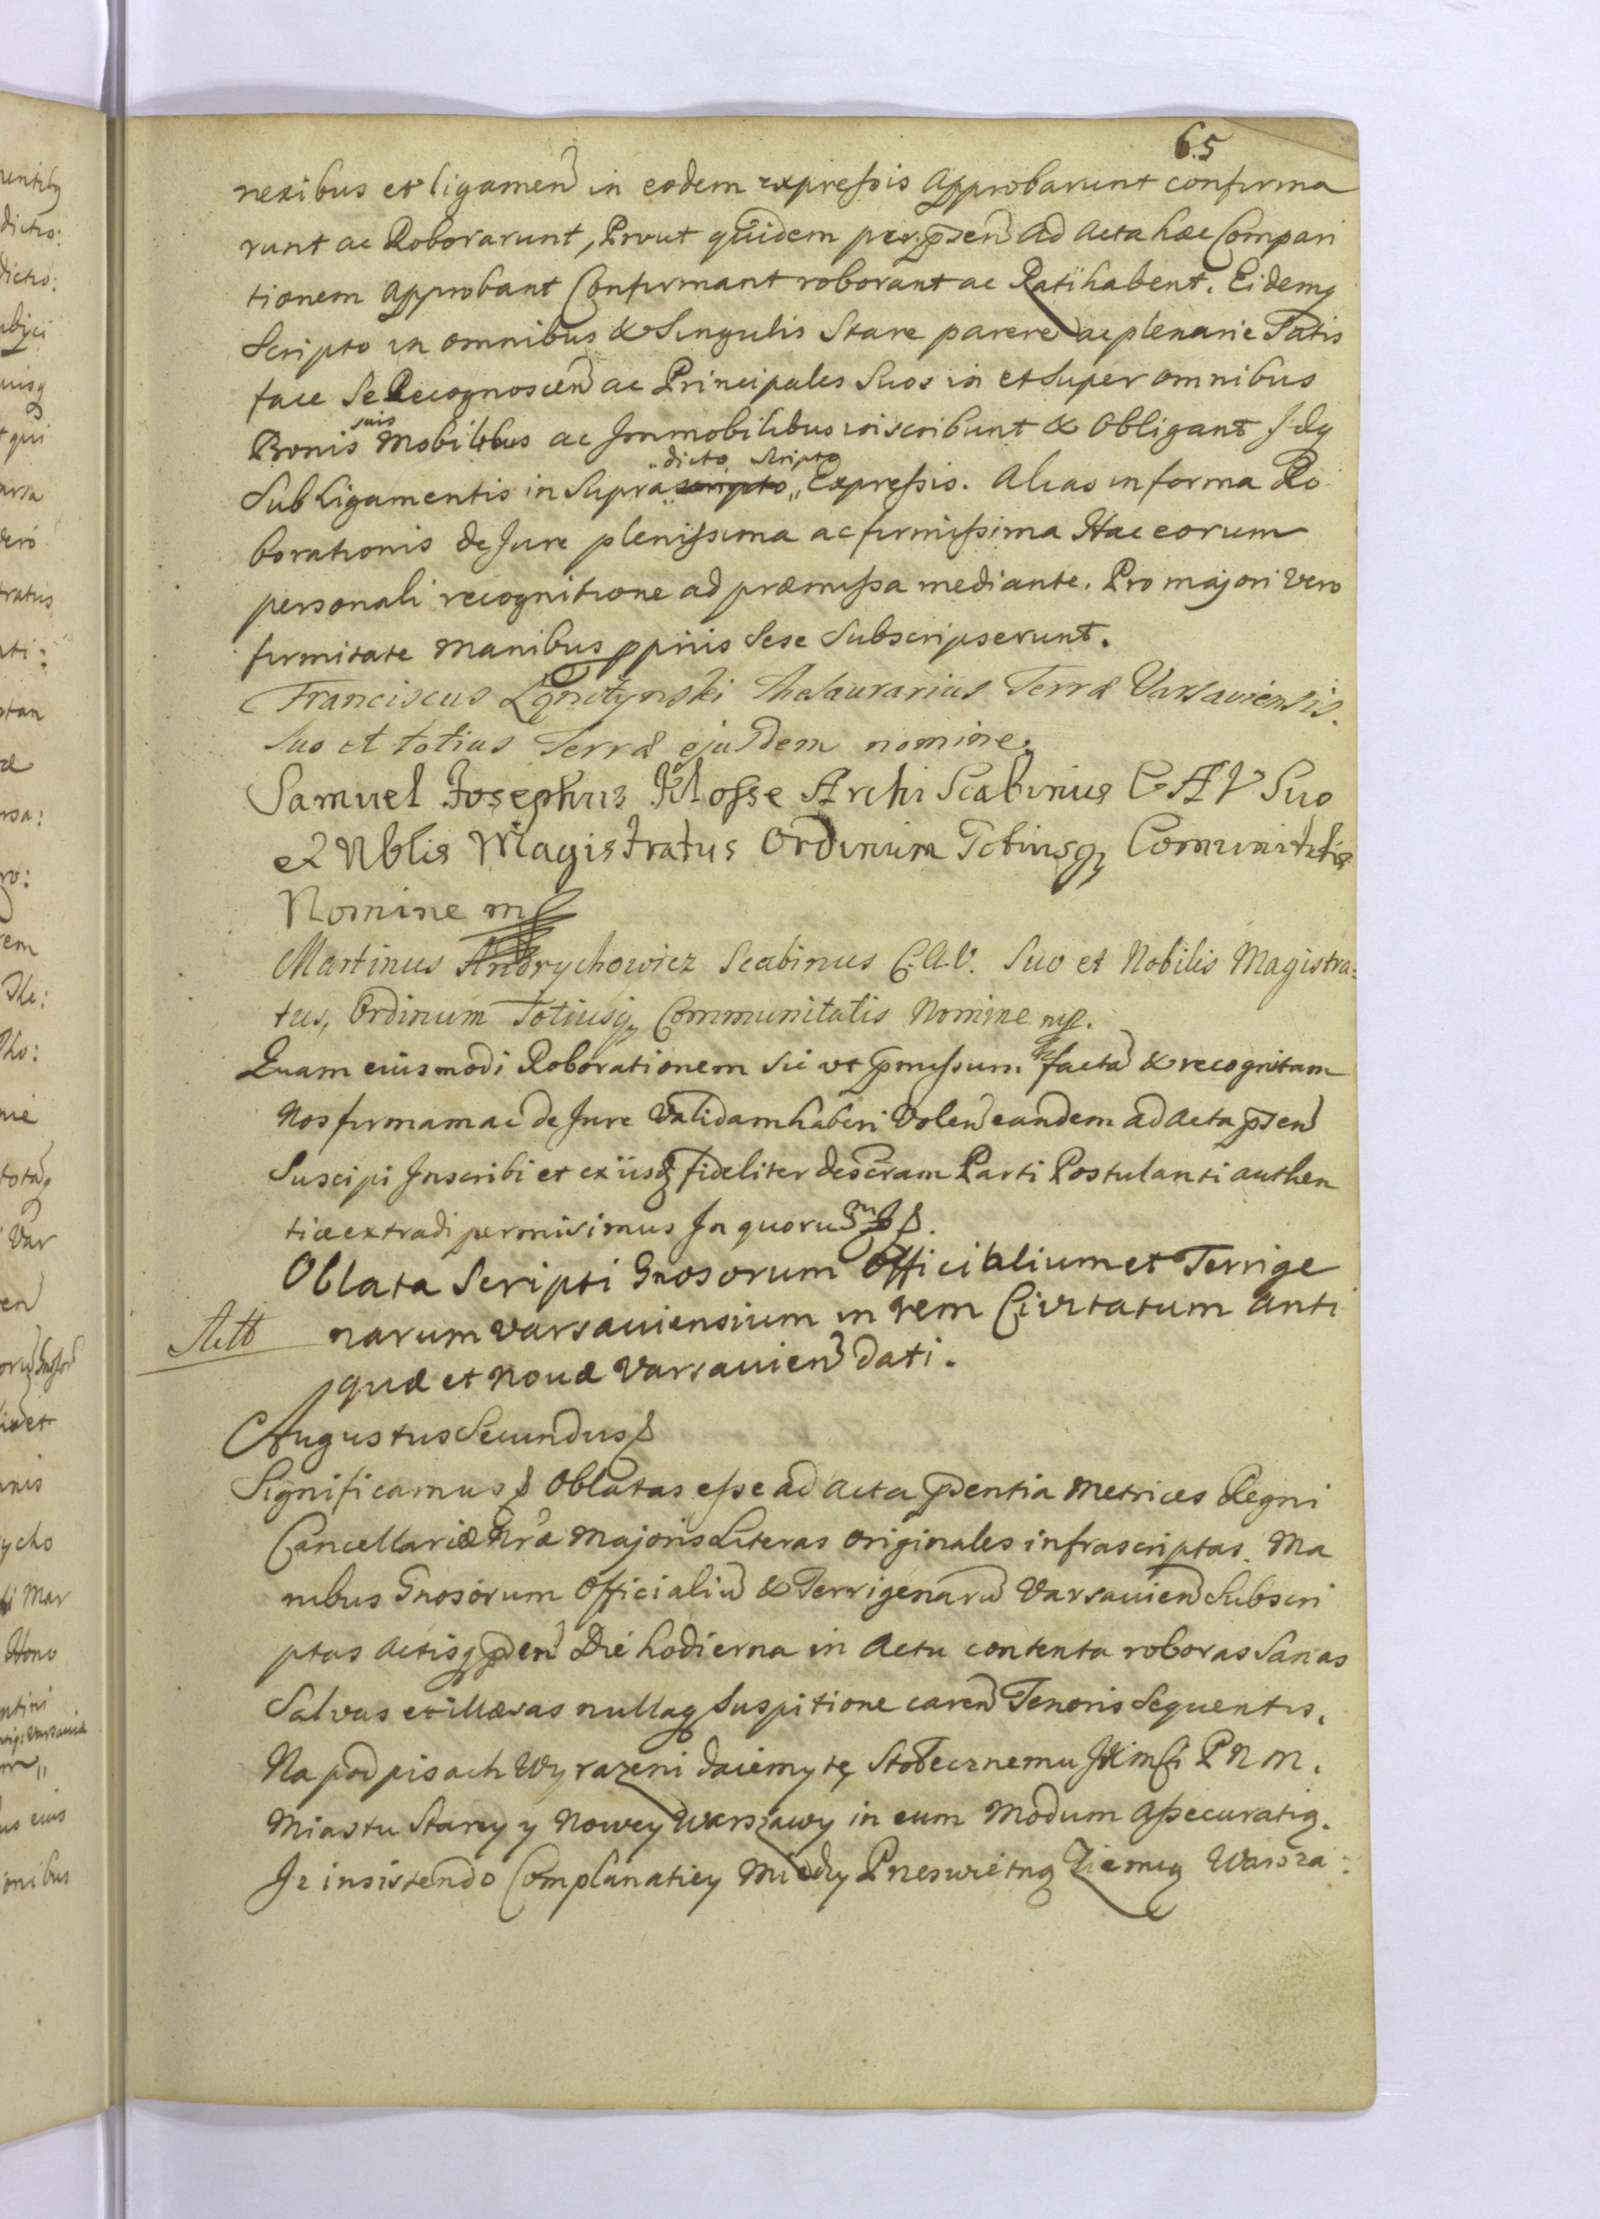 65
nexibus et ligamen in eodem expressis Approbarunt confirma
runt ac Roborarunt, Prout quidem per psen ad Acta hæc Compari
tionem Approbant Confirmant roborant ac Ratihabent. Eidemq
Scripto in omnibus & Singulis Stare parere ac plenarie Satis
face Se Recognoscen ac Principales Suos in et Super omnibus
Bonis suis Mobilibus ac Immobilibus inscribunt & Obligant Idq
Sub Ligamentis in Supra dicto Scripto Expressis. Alias in forma Ro
borationis de Jure plenissima ac firmissima Hac eorum
personali recognitione ad præmissa mediante. Pro majori vero
firmitate Manibus ppriis Sese Subscripserunt.
Franciscus Thesaurarius Terræ Varsaviensis.
Suo et totius Terræ ejusdem nomine.
Samuel Josephus Klosse Archi Scabinus C A V Suo
et Nblis Magistratus Ordinum Totiusq Comunitatis
Nomine mp
Martinus Andrychowicz Scabinus C.A.V. Suo et Nobilis Magistra=
tus, Ordinum Totiusq Communitatis Nomine mp.
Quam eiusmodi Roborationem Sic ut pmissum facta & recognitam
Nos firmam ac de Jure Validam haberi Volen eandem ad Acta psen
Suscipi Inscribi et ex iisq fideliter descram Parti Postulanti authen
tice extradi permisimus In quoru
Oblata Scripti Gnosorum Officialium et Terrige
narum Varsaviensium in rem Civitatum Anti
quæ et Novæ Varsavien dati.
Augustus Secundus
Significamus Oblatas esse ad Acta psentia Metrices Regni
Cancellariæ Nræ Majoris Literas Originales infrascriptas Ma
nibus Gnosorum Officialiu & Terrigenaru Varsavien Subscri
ptas Actisq psen Die hodierna in Actu contenta roboras Sanas
Salvas et illæsas nullaq Suspitione caren Tenoris Sequentis.
Na podpisach Wyrazeni daiemy tę Stołecznemu P N M.
Miastu Starey y Nowey Warszawy in eum Modum Assecuratią.
Iz insistendo Complanatiey Miedzy Przeswietną Ziemią Warsza: